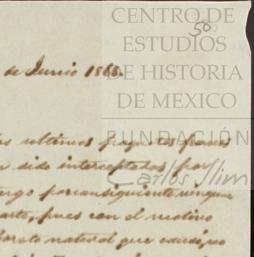 CENTRO DE
ESTUDIOS
DE HISTORIA
DE MEXICO
FUNDACIÓN
Carlos Slim
50
de Junio 1865.
ultimos
sido interceptados por
porconsiguiente ningun
pues con el motivo
natural que causó, no